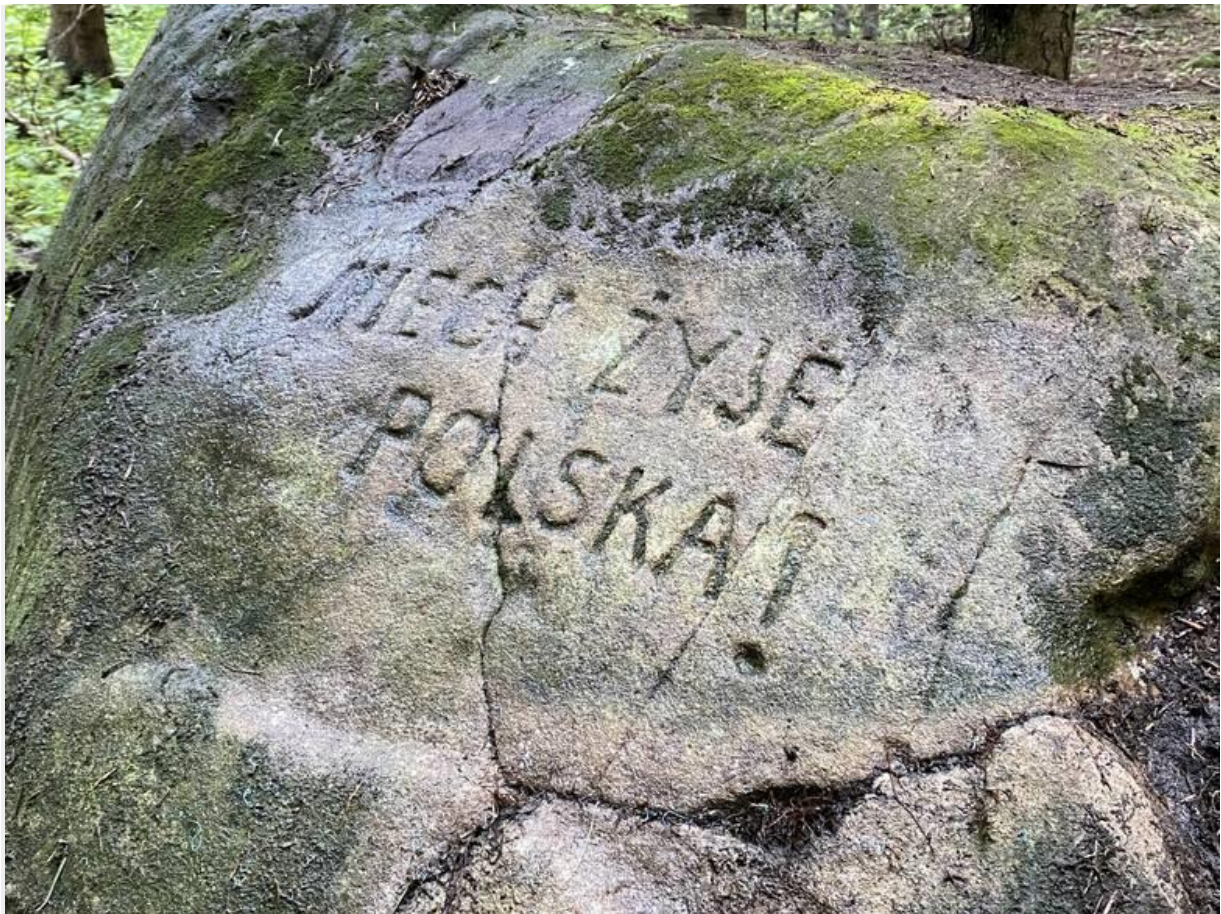 NIECH ŻYJE
POLSKA!